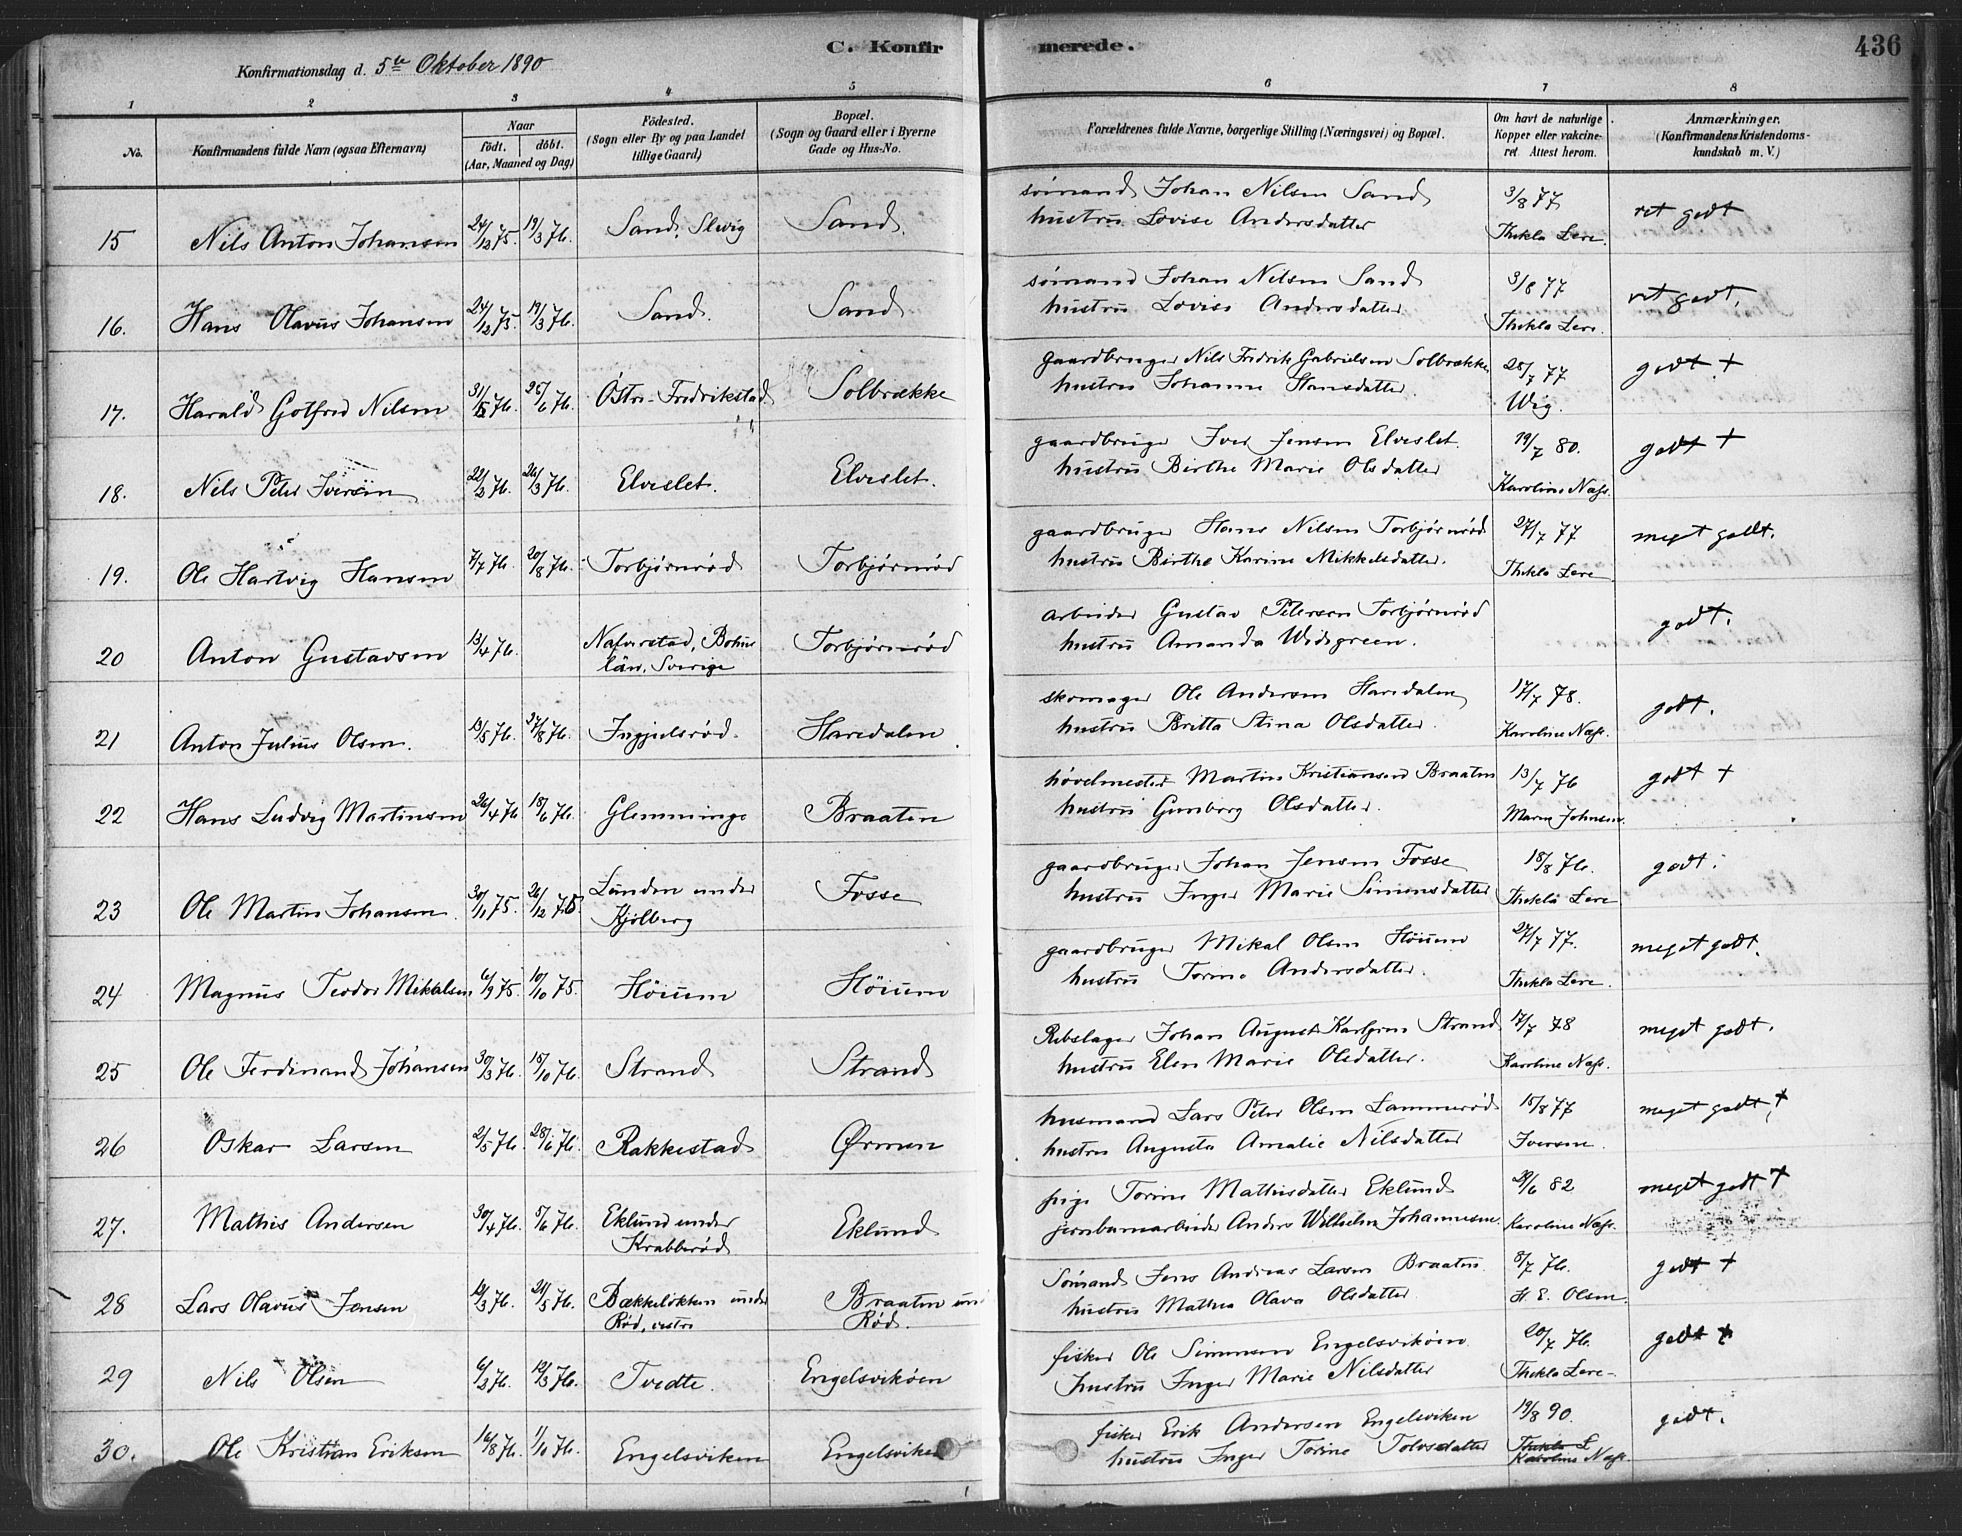 C. Konfirmerede.
436
Konfirmationsdag d. 5te Oktober 1890
1 2 3 4 5 6 7 8
No.
Konfirmandens fulde Navn (ogsaa Efternavn)
Naar
født. døbt.
(Aar, Maaned og Dag)
Fødested.
(Sogn eller By og paa Landet
tillige Gaard)
Bopæl.
(Sogn og Gaard eller i Byerne
Gade og Hus-No.
Forældrenes fulde Navne, borgerlige Stilling (Næringsvei) og Bopæl.
Om havt de naturlige
Kopper eller vakcine-
ret Attest herom.
Anmærkninger.
(Konfirmandens Kristendoms-
kundskab m. V.)
15 Nils Anton Johansen 24/12 75. 19/3 76. Sand, Slevig Sand.
sömand Johan Nilsen Sand 3/8 77 ret godt
hustru Lovise Andersdatter Thekla Lere.
16. Hans Olavus Johansen 24/12 75. 19/3 76. Sand. Sand
sömand Johan Nilsen Sand 3/8 77 ret godt.
hustru Lovise Andersdatter Thekla Lere.
17. Harald Gotfred Nilsen 31/5 76. 25/6 76. Östre-Fredrikstad Solbrække
gaardbruger Nils Fredrik Gabrielsen Solbrække 28/7 77 godt +
hustru Johanne Hansdatter. Wig.
18. Nils Peter Iversen 22/2 76. 26/3 76. Elveslet. Elveslet.
gaardbruger Iver Jensen Elveslet. 19/7 80. godt +
hustru Birthe Marie Olsdatter Karoline Næss.
19. Ole Hartvig Hansen 7/7 76. 20/8 76. Torbjørnrød Torbjørnrød
gaardbruger Hans Nilsen Torbjørnrød 27/7 77 meget godt.
hustru Birthe Karine Mikkelsdatter. Thekla Lere
20 Anton Gustavsen 13/4 76. Naverstad, Bohus Torbjørnrød
län, Sverige
arbeider Gustav Petersen Torbjørnrød godt.
hustru Amanda Widsgreen.
21 Anton Julius Olsen. 13/5 76. 27/8 76. Ingjelsrød. Haredalen
skomager Ole Andersen Haredalen 17/7 78. godt.
hustru Britta Stina Olsdatter. Karoline Næss.
22 Hans Ludvig Martinsen 26/4 76 18/6 76. Glemminge Braaten
hövelmester Martin Kristiansen Braaten 13/7 76 godt +
hustru Gunborg Olsdatter. Marie Johnsen.
23 Ole Martin Johansen. 30/11 75. 26/12 75. Lunden under Fosse
Kjölberg
gaardbruger Johan Jensen Fosse 18/8 76. godt.
hustru Inger Marie Simensdatter Thekla Lere
24 Magnus Teodor Mikalsen 6/9 75. 10/10 75. Höium Höium
gaardbruger Mikal Olsen Höium 27/7 77. meget godt.
hustru Torine Andersdatter. Thekla Lere.
25 Ole Ferdinand Johansen 30/3 76. 15/10 76. Strand Strand
Rebslager Johan August Karlgren Strand 17/7 78 meget godt.
hustru Elen Marie Olsdatter. Karoline Næss.
26 Oskar Larsen 2/5 76. 28/6 76. Rakkestad Ørmen
husmand Lars Peter Olsen Lammerød 15/8 77 meget godt, +
hustru Augusta Amalie Nilsdatter Iversen.
27. Mathis Andersen 30/4 76. 5/6 76. Eklund under Eklund
Krabberød
pige Torine Mathisdatter Eklund 29/6 82 meget godt +
jernbanearbeider Anders Wilhelm Johannesen. Karoline Næss.
28 Lars Olavus Jensen 12/3 76. 21/5 76. Bækkeløkken under Braaten un
Rød, vestre Rød.
Sömand Jens Andreas Larsen Braaten. 8/7 76. godt +
hustru Mathea Olava Olsdatter H. E. Olsen.
29 Nils Olsen 6/2 76. 12/3 76. Tvedte. Engelsvikøen
fisker Ole Simensen Engelsvikøen 20/7 76. godt +
hustru Inger Marie Nilsdatter Thekla Lere.
30. Ole Kristian Eriksen 16/8 76. 1/10 76. Engelsviken Engelsviken
fisker Erik Andersen Engelsviken 19/8 90. godt.
hustru Inger Torine Tolvsdatter Thekla L
Karoline Næss.